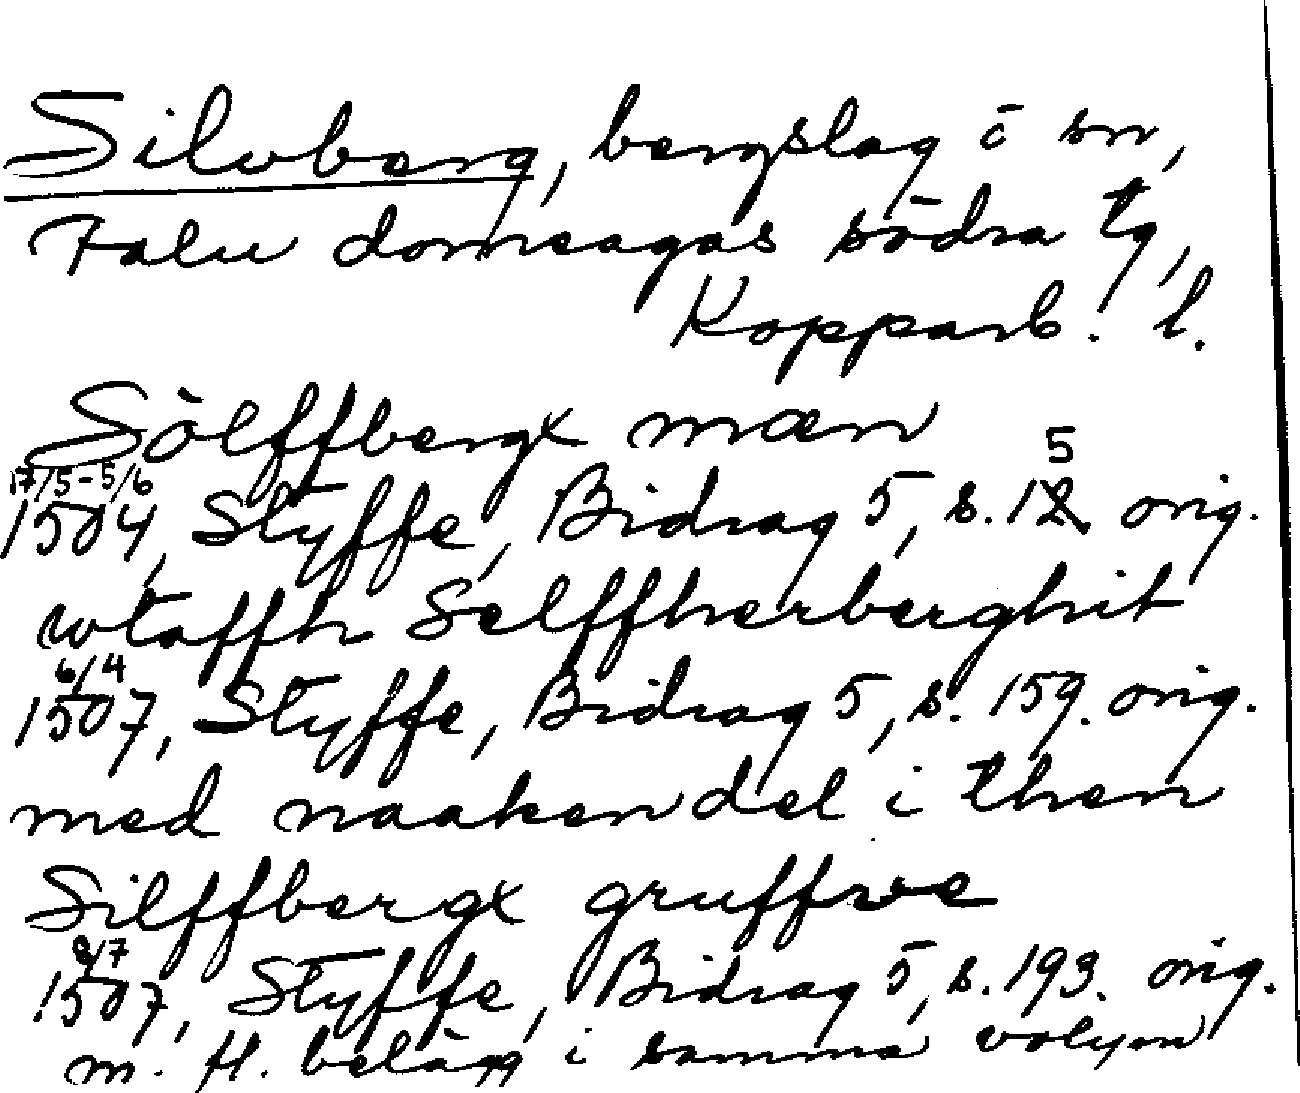 Silvberg, bergslag o sn,
Falu domsagas södra tg,
Kopparb. l.
Sölffbergx mæn
17/5-5/6
1504, Styffe, Bidrag 5, s. 15 orig.
wtaffh Selffherberghit
6/4
1507, Styffe, Bidrag 5, s. 159. orig.
med naaken del i then
Silffbergx gruffwe
9/7
1507, Styffe, Bidrag 5, s. 193. orig.
m. fl. belägg i samma volym